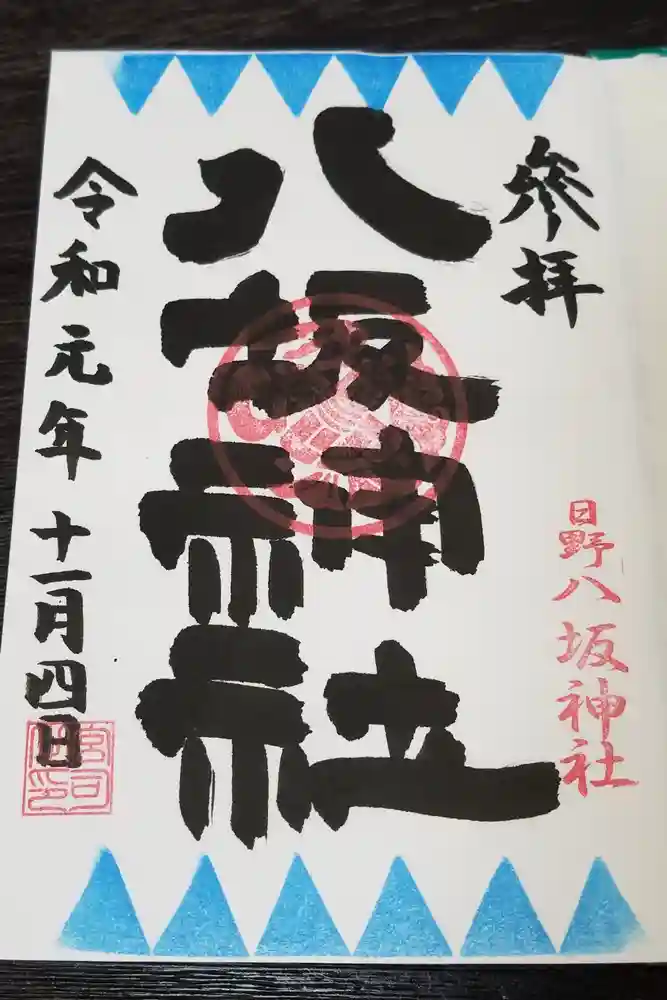 參拝
日野八坂神社
八坂神社
令和元年十一月四日
宮司之印